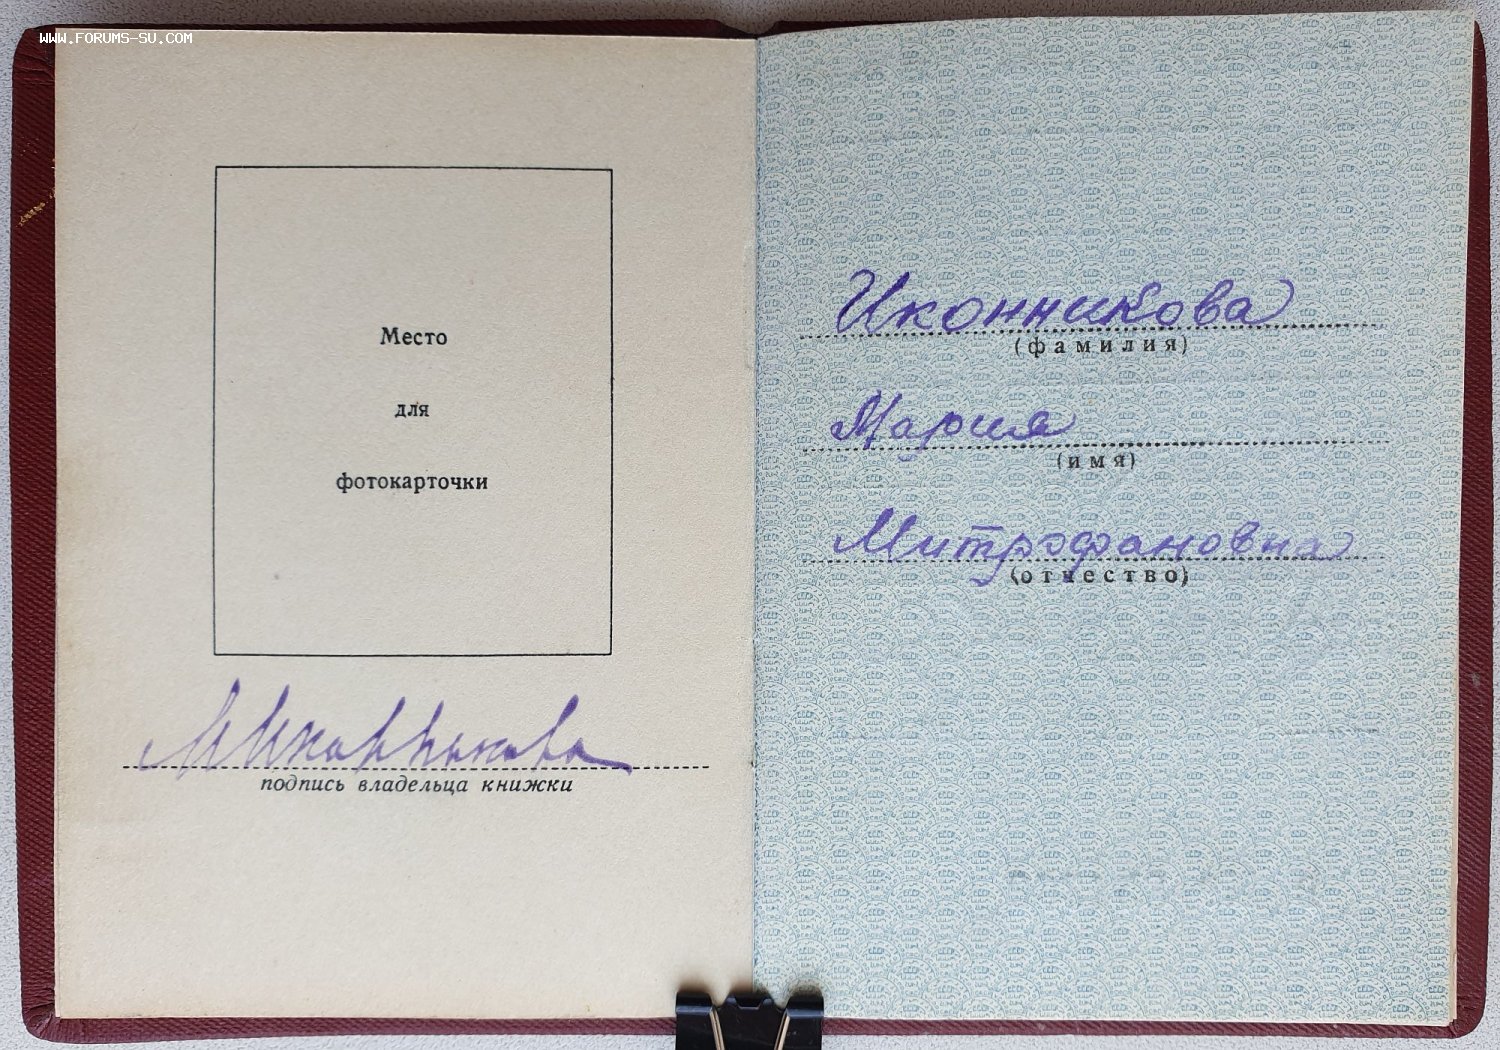 WWW.FORUMS-SU.COM
Место
для
фотокарточки
М Иконникова
подпись владельца книжки
Иконникова
(фамилия)
Мария
(имя)
Митрофановна
(отчество)